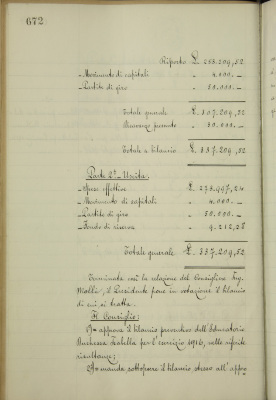 672
Riporto £. 268.209,52
- Movimento di capitali " 4.000. -
- Partite di giro " 50.000. -
Totale generale £. 307.209,52
Avanzo presunto " 30.000. -
Totale a bilancio £. 337.209,52
Parte 2ª - Uscita.
- Spese effettive £. 273.997,24
- Movimento di capitali " 4.000. -
- Partite di giro " 50.000. -
- Fondo di riserva " 9.212,28
Totale generale £. 337.209,52
Terminata così la relazione del Consigliere Ing.
Molli, il Presidente pone in votazione il bilancio
di cui si tratta.
Il Consiglio;
1)= approva il bilancio preventivo dell'Educatorio
Duchessa Isabella per l'esercizio 1916, nelle riferite
risultanze;
2)= manda sottoporre il bilancio stesso all'appro